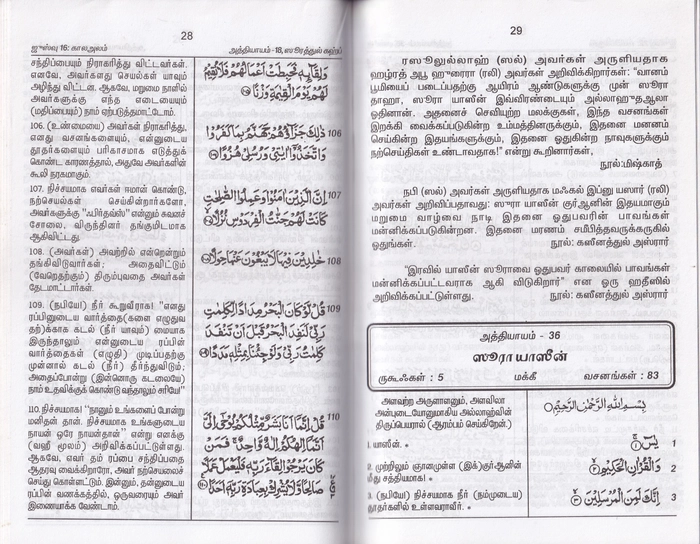 28
ஜுஸ்வு 16: காலஅலம்
அத்தியாயம் -18, ஸூரத்துல் கஹ்ஃபி
சந்திப்பையும் நிராகரித்து விட்டவர்கள்.
எனவே, அவர்களது செயல்கள் யாவும்
அழிந்து விட்டன. ஆகவே, மறுமை நாளில்
அவர்களுக்கு எந்த எடையையும்
(மதிப்பையும்) நாம் ஏற்படுத்தமாட்டோம்.
106. (உண்மையை) அவர்கள் நிராகரித்து,
எனது வசனங்களையும், என்னுடைய
தூதர்களையும் பரிகாசமாக எடுத்துக்
கொண்ட காரணத்தால், அதுவே அவர்களின்
கூலி நரகமாகும்.
107. நிச்சயமாக எவர்கள் ஈமான் கொண்டு,
நற்செயல்கள் செய்கிறார்களோ,
அவர்களுக்கு "ஃபிர்தவ்ஸ்" என்னும் சுவனச்
சோலை, விருந்தினர் தங்குமிடமாக
ஆகிவிட்டது.
108. (அவர்கள்) அவற்றில் என்றென்றும்
தங்கிவிடுவார்கள்; அதைவிட்டும்
(வேறெதற்கும்) திரும்புவதை அவர்கள்
தேடமாட்டார்கள்.
109. (நபியே!) நீர் கூறுவீராக! "எனது
ரப்பினுடைய வார்த்தை(களை எழுதுவ
தற்)க்காக கடல் (நீர் யாவும்) மையாக
இருந்தாலும் என்னுடைய ரப்பின்
வார்த்தைகள் (எழுதி) முடிப்பதற்கு
முன்னால் கடல் (நீர்) தீர்ந்துவிடும்;
அதைப்போன்று (இன்னொரு கடலையே)
நாம் உதவிக்குக் கொண்டு வந்தாலும் சரியே!"
110. நிச்சயமாக! "நானும் உங்களைப் போன்று
மனிதன் தான். நிச்சயமாக உங்களுடைய
நாயன் ஒரே நாயன்தான்" என்று எனக்கு
(வஹீ மூலம்) அறிவிக்கப்பட்டுள்ளது.
ஆகவே, எவர் தம் ரப்பை சந்திப்பதை
ஆதரவு வைக்கிறாரோ, அவர் நற்செயலைச்
செய்து கொள்ளட்டும். இன்னும், தன்னுடைய
ரப்பின் வணக்கத்தில், ஒருவரையும் அவர்
இணையாக்க வேண்டாம்.
وَلِقَآئِهٖ فَحَبِطَتْ اَعْمَالُهُمْ فَلَا نُقِيْمُ
لَهُمْ يَوْمَ الْقِيٰمَةِ وَزْنًا
ذٰلِكَ جَزَآؤُهُمْ جَهَنَّمُ بِمَا كَفَرُوْا 106
وَاتَّخَذُوْٓا اٰيٰتِيْ وَرُسُلِيْ هُزُوًا
اِنَّ الَّذِيْنَ اٰمَنُوْا وَعَمِلُوا الصّٰلِحٰتِ 107
كَانَتْ لَهُمْ جَنّٰتُ الْفِرْدَوْسِ نُزُلًا
خٰلِدِيْنَ فِيْهَا لَا يَبْغُوْنَ عَنْهَا حِوَلًا 108
قُلْ لَّوْ كَانَ الْبَحْرُ مِدَادًا لِّكَلِمٰتِ 109
رَبِّيْ لَنَفِدَ الْبَحْرُ قَبْلَ اَنْ تَنْفَدَ
كَلِمٰتُ رَبِّيْ وَلَوْ جِئْنَا بِمِثْلِهٖ مَدَدًا
قُلْ اِنَّمَآ اَنَا بَشَرٌ مِّثْلُكُمْ يُوْحٰٓى اِلَيَّ 110
اَنَّمَآ اِلٰهُكُمْ اِلٰهٌ وَّاحِدٌ فَمَنْ
كَانَ يَرْجُوْا لِقَآءَ رَبِّهٖ فَلْيَعْمَلْ عَمَلًا
صَالِحًا وَّلَا يُشْرِكْ بِعِبَادَةِ رَبِّهٖٓ اَحَدًا
29
ரஸூலுல்லாஹ் (ஸல்) அவர்கள் அருளியதாக
ஹழ்ரத் அபூ ஹுரைரா (ரலி) அவர்கள் அறிவிக்கிறார்கள்: "வானம்
பூமியைப் படைப்பதற்கு ஆயிரம் ஆண்டுகளுக்கு முன் ஸூரா
தாஹா, ஸூரா யாஸீன் இவ்விரண்டையும் அல்லாஹுதஆலா
ஓதினான். அதனைச் செவியுற்ற மலக்குகள், இந்த வசனங்கள்
இறக்கி வைக்கப்படுகின்ற உம்மத்தினருக்கும், இதனை மனனம்
செய்கின்ற இதயங்களுக்கும், இதனை ஓதுகின்ற நாவுகளுக்கும்
நற்செய்திகள் உண்டாவதாக!" என்று கூறினார்கள்,
நூல்:மிஷ்காத்
நபி (ஸல்) அவர்கள் அருளியதாக மஃகல் இப்னு யஸார் (ரலி)
அவர்கள் அறிவிப்பதாவது: ஸுரா யாஸீன் குர்ஆனின் இதயமாகும்
மறுமை வாழ்வை நாடி இதனை ஓதுபவரின் பாவங்கள்
மன்னிக்கப்படுகின்றன. இதனை மரணம் சமீபித்தவருக்கருகில்
ஓதுங்கள்.
நூல்: கஸீனத்துல் அஸ்ரார்
"இரவில் யாஸீன் ஸூராவை ஓதுபவர் காலையில் பாவங்கள்
மன்னிக்கப்பட்டவராக ஆகி விடுகிறார்" என ஒரு ஹதீஸில்
அறிவிக்கப்பட்டுள்ளது.
நூல்: கஸீனத்துல் அஸ்ரார்
அத்தியாயம் - 36
ஸூரா யாஸீன்
ருகூஃகள் : 5 மக்கீ வசனங்கள் : 83
அளவற்ற அருளாளனும், அளவிலா
அன்புடையோனுமாகிய அல்லாஹ்வின்
திருப்பெயரால் (ஆரம்பம் செய்கிறேன்.)
بِسْمِ اللّٰهِ الرَّحْمٰنِ الرَّحِيْمِ
1. யாஸீன். *
يٰسٓ 1
2. முற்றிலும் ஞானமுள்ள (இக்)குர்ஆனின்
மீது சத்தியமாக! *
وَالْقُرْاٰنِ الْحَكِيْمِ 2
3. (நபியே!) நிச்சயமாக நீர் (நம்முடைய)
தூதர்களில் உள்ளவராவீர். *
اِنَّكَ لَمِنَ الْمُرْسَلِيْنَ 3